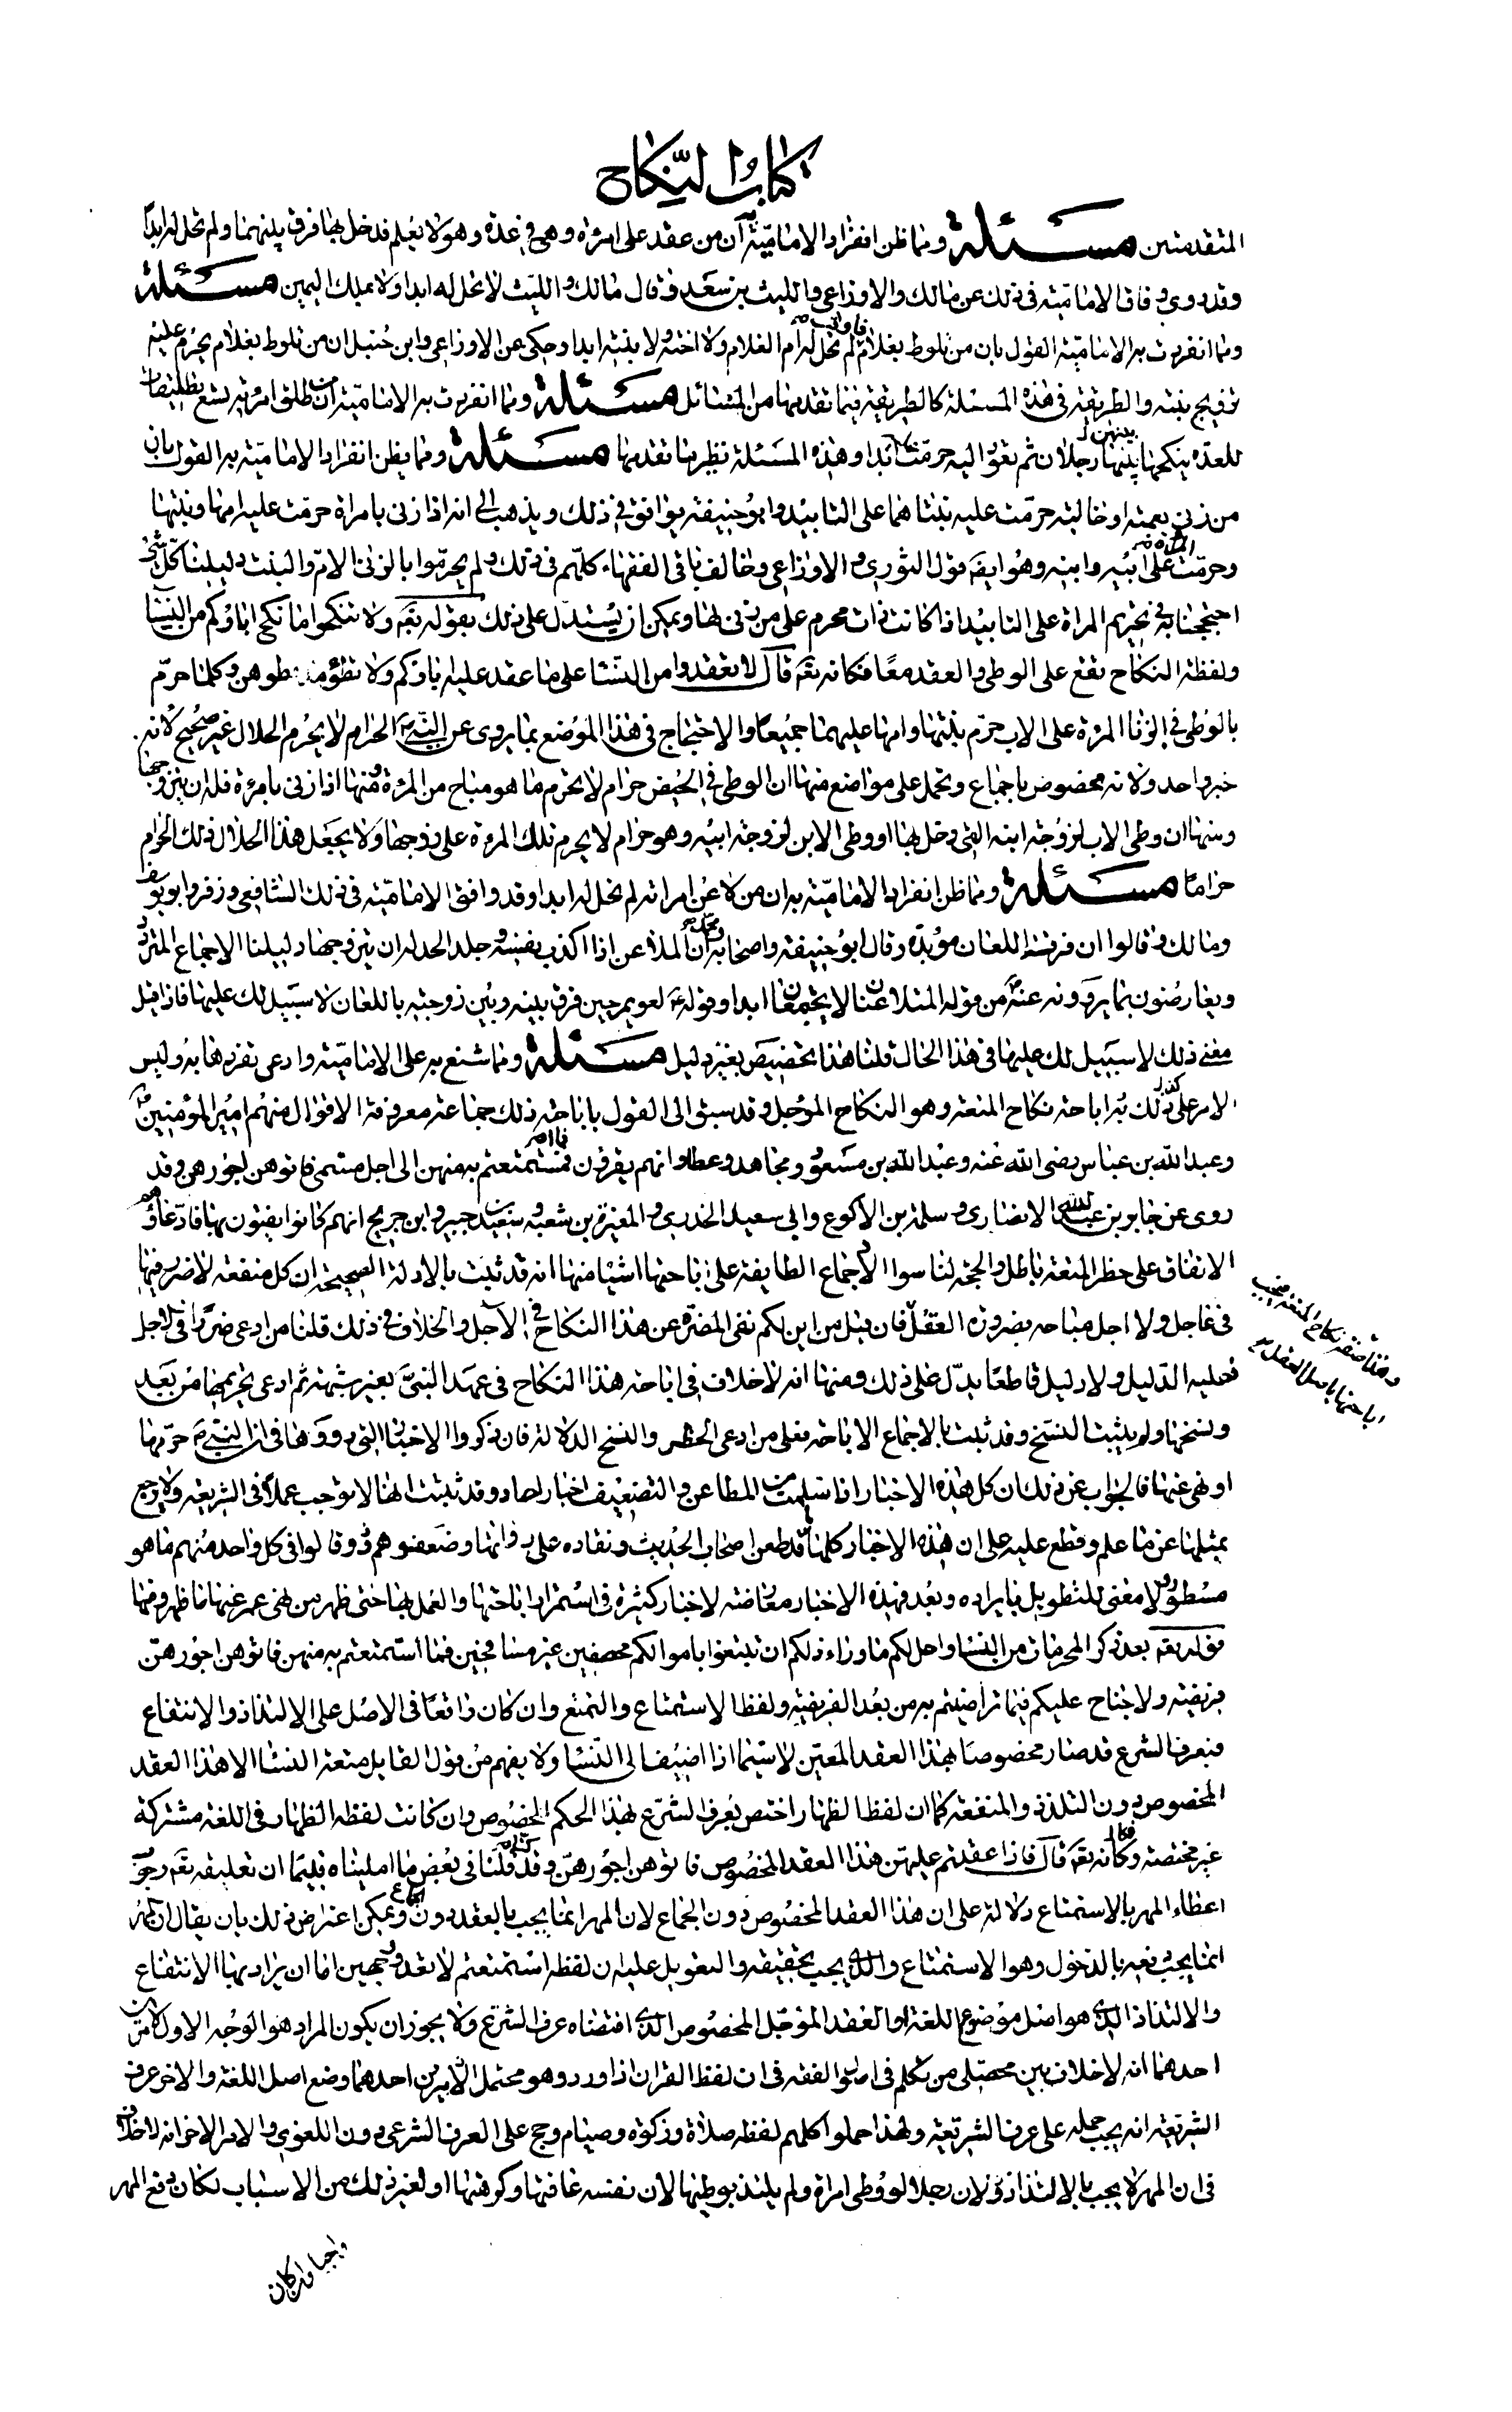 كتاب النكاح
المتقدمتين مسئلة ومما ظن انفراد الامامية به ان من عقد على امرأة وهى فى عدة وهو لا يعلم فدخل بها فرق بينهما ولم تحل له ابدا
وقد روى وفاق الامامية فى ذلك عن مالك والاوزاعى والليث بن سعد وقال مالك والليث لا تحل له ابدا ولا بملك اليمين مسئلة
ومما انفردت به الامامية القول بان من تلوط بغلام فاوقب لم تحل له ام الغلام ولا اخته ولا بنته ابدا وحكى عن الاوزاعى وابن حنبل ان من تلوط بغلام يحرم عليه
تزويج بنته والطريقة فى هذه المسئلة كالطريقة فيما تقدمها من المسائل مسئلة ومما انفردت به الامامية ان من طلق امرأته تسع تطليقات
للعدة ينكحها بينهن رجلان ثم تعود اليه حرمت عليه ابدا وهذه المسئلة نظير ما تقدمها مسئلة ومما يظن انفراد الامامية به القول بان
من زنى بعمته او خالته حرمت عليه بنتاهما على التابيد وابو حنيفة يوافق فى ذلك ويذهب الى انه اذا زنى بامرأة حرمت عليه امها وبنتها
وحرمت المرأة على ابيه وابنه وهو ايضا قول الثورى والاوزاعى وخالف باقى الفقهاء كلهم فى ذلك ولم يحرموا بالزنى الام والبنت دليلنا كل شىء
احتججنا به فى تحريم المرأة على التابيد اذا كانت ذات محرم على من زنى بها ويمكن ان يستدل على ذلك بقوله تعه ولا تنكحوا ما نكح اباؤكم من النسا
ولفظة النكاح تقع على الوطى والعقد معا فكانه تعه قال لا تعقدوا من النسا على ما عقد عليه اباؤكم ولا تطؤا ما وطوهن وكلما حرم
بالوطى فى الزنا المرئة على الاب حرم بنتها وامها عليهما جميعا والاحتجاج فى هذا الموضع بما يروى عن النبى الحرام لا يحرم الحلال غير صحيح لانه
خبر واحد ولانه مخصوص باجماع ونحمل على مواضع منها ان الوطى فى الحيض حرام لا يحرم ما هو مباح من المرئة ومنها اذا زنى بامرئة فله ان يتزوجها
ومنها ان وطى الاب لزوجة ابنه التى دخل بها او وطى الابن لزوجة ابيه وهو حرام لا يحرم تلك المرئة على زوجها ولا يجعل هذا الحلال ذلك الحرام
حراما مسئلة ومما ظن انفراد الامامية به ان من لاعن امراته لم تحل له ابدا وقد وافق الامامية فى ذلك الشافعى وزفر وابو يوسف
ومالك وقالوا ان فرقة اللعان مؤبدة وقال ابو حنيفة واصحابه ومحمد ان الملاعن اذا اكذب نفسه وجلد الحد له ان يتزوجها دليلنا الاجماع المتردد
ويعارضون بما يروونه عنه من قوله المتلاعنان لا يجتمعان ابدا وقوله لعويمر حين فرق بينه وبين زوجته باللعان لا سبيل لك عليها فاذا قيل
معنى ذلك لا سبيل لك عليها فى هذا الحال قلنا هذا تخصيص بغير دليل مسئلة ومما شنع به على الامامية وادعى تفردها به وليس
الامر على ذلك اباحة نكاح المتعة وهو النكاح المؤجل وقد سبق الى القول باباحة ذلك جماعة معروفة الاقوال منهم امير المؤمنين
وعبد الله بن عباس رضى الله عنه وعبد الله بن مسعود ومجاهد وعطا وانهم يقرؤن فما استمتعتم به منهن الى اجل مسمى فاتوهن اجورهن وقد
روى عن جابر بن عبد الله الانصارى وسلمة بن الاكوع وابى سعيد الخدرى والمغيرة بن شعبه وسعيد بن جبير وابن جريج انهم كانوا يفتون بها فادعاؤهم
الاتفاق على حظر المتعة باطل والحجة لنا سوا الاجماع الطايفة على اباحتها اشيا منها انه قد ثبت بالادلة الصحيحة ان كل منفعة لا ضرر فيها
فى عاجل ولا اجل مباحه بضرورة العقل فان قيل من اين لكم نفى المضرة عن هذا النكاح فى الآجل والخلاف فى ذلك قلنا من ادعى ضررا فى الآجل
وهذا صفة نكاح المتعة فيجب
اباحتها باصل العقل
فعليه الدليل ولا دليل قاطعا يدل على ذلك ومنها انه لا خلاف فى اباحة هذا النكاح فى عهد النبى بغير شبهة ثم ادعى تحريمها من بعد
ونسخها ولم يثبت النسخ وقد ثبت بالاجماع الاباحة فعلى من ادعى الحظر والنسخ الدلالة فان ذكروا الاخبار التى رووها فى ان النبى حرمها
او نهى عنها فالجواب عن ذلك ان كل هذه الاخبار اذا سلمت من المطاعن والتضعيف اخبار احاد وقد ثبتت انها لا توجب عملا فى الشريعة ولا يرجع
بمثلها عن ما علم وقطع عليه على ان هذه الاخبار كلها قد طعن اصحاب الحديث ونقاده على رواتها وضعفوهم وقالوا فى كل واحد منهم ما هو
مسطور لا معنى للتطويل بايراده وبعد فهذه الاخبار معارضة لاخبار كثيرة فى استمرار اباحتها والعمل بها حتى ظهر من نهى عمر عنها ما ظهر ومنها
قوله تعه بعد ذكر المحرمات من النسا واحل لكم ما وراء ذلكم ان تبتغوا باموالكم محصنين غير مسافحين فما استمتعتم به منهن فاتوهن اجورهن
فريضة ولا جناح عليكم فيما تراضيتم به من بعد الفريضة ولفظ الاستمتاع والتمتع وان كان واقعا فى الاصل على الالتذاذ والانتفاع
فبعرف الشرع قد صار مخصوصا بهذا العقد المعين لا سيما اذا اضيف الى النسا ولا يفهم من قول القايل متعة النسا الا هذا العقد
المخصوص دون التلذذ والمنفعة كما ان لفظ الظهار اختص بعرف الشرع بهذا الحكم المخصوص وان كانت لفظة الظهار فى اللغة مشتركة
غير مختصة وكانه تعه قال فاذا عقدتم عليهن هذا العقد المخصوص فاتوهن اجورهن وقد قلنا فى بعض ما امليناه قديما ان تعليقه تعه وجوب
اعطاء المهر بالاستمتاع دلالة على ان هذا العقد المخصوص دون الجماع لان المهر انما يجب بالعقد دون الجماع ويمكن اعتراض ذلك بان يقال ان المهر
انما يجب دفعه بالدخول وهو الاستمتاع والذى يجب تحقيقه والتعويل عليه ان لفظه استمتعتم لا تعدو وجهين اما ان يراد بها الانتفاع
والالتذاذ الذى هو اصل موضوع اللغة او العقد المؤجل المخصوص الذى اقتضاه عرف الشرع ولا يجوز ان يكون المراد هو الوجه الاول لامرين
احدهما انه لا خلاف بين محصلى من تكلم فى اصول الفقه فى ان لفظ القران اذا ورد وهو محتمل لامرين احدهما وضع اصل اللغة والاخر عرف
الشريعة انه يجب حمله على عرف الشريعة ولهذا حملوا كلهم لفظه صلاة وزكوة وصيام وحج على العرف الشرعى دون اللغوى والامر الاخر انه لا خلاف
فى ان المهر لا يجب بالالتذاذ ولان رجلا لو وطى امراة ولم يلتذ بوطيها لان نفسه عافتها وكرهتها او لغير ذلك من الاسباب لكان دفع المهر
واجبا وان كان